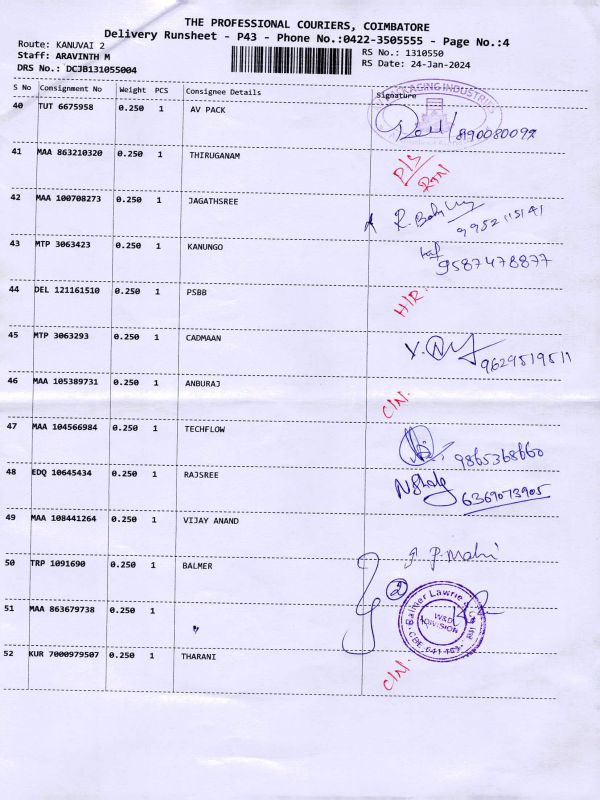 THE PROFESSIONAL COURIERS, COIMBATORE
Delivery Runsheet - P43 - Phone No.:0422-3505555 - Page No.:4
Route: KANUVAI 2
Staff: ARAVINTH M
DRS No.: DCJB131055004
RS No.: 1310550
RS Date: 24-Jan-2024
S No Consignment No Weight PCS Consignee Details Signature
PACKAGING INDUSTRIES
40 TUT 6675958 0.250 1 AV PACK 890080092
41 MAA 863210320 0.250 1 THIRUGANAM P/S
42 MAA 100708273 0.250 1 JAGATHSREE 9952115141
43 MTP 3063423 0.250 1 KANUNGO 9587478877
44 DEL 121161510 0.250 1 PSBB H/R.
45 MTP 3063293 0.250 1 CADMAAN 9629519511
46 MAA 105389731 0.250 1 ANBURAJ C/N.
47 MAA 104566984 0.250 1 TECHFLOW 9865368660
48 EDQ 10645434 0.250 1 RAJSREE 6369073905
49 MAA 108441264 0.250 1 VIJAY ANAND P. Mahi
50 TRP 1091690 0.250 1 BALMER 2
Balmer Lawrie
W&D
DIVISION
51 MAA 863679738 0.250 1
52 KUR 7000979507 0.250 1 THARANI C/N.